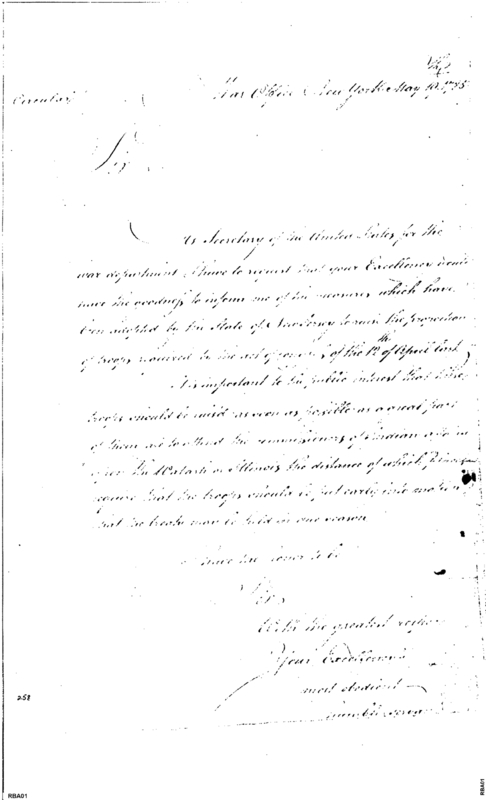 Circular
War Office New York May 19. 1785
Sir
As Secretary of the United States for the
war department I have to request that your Excellency would
have the goodness to inform me of the measures which have
been adopted by the State of New Jersey to raise the proportion
of troops required by the act of congress of the 12th of April last
It is important to the public interest that these
troops should be raised as soon as possible as a great part
of them are to attend the commissioners of Indian affairs
the Wabash or Illinois the distance of which places
require that the troops should be put early into motion
that the treaty may be held in one season
I have the honor to be
Sir
With the greatest respect
Your Excellency's
most obedient
humble servant
258
RBA01
RBA01